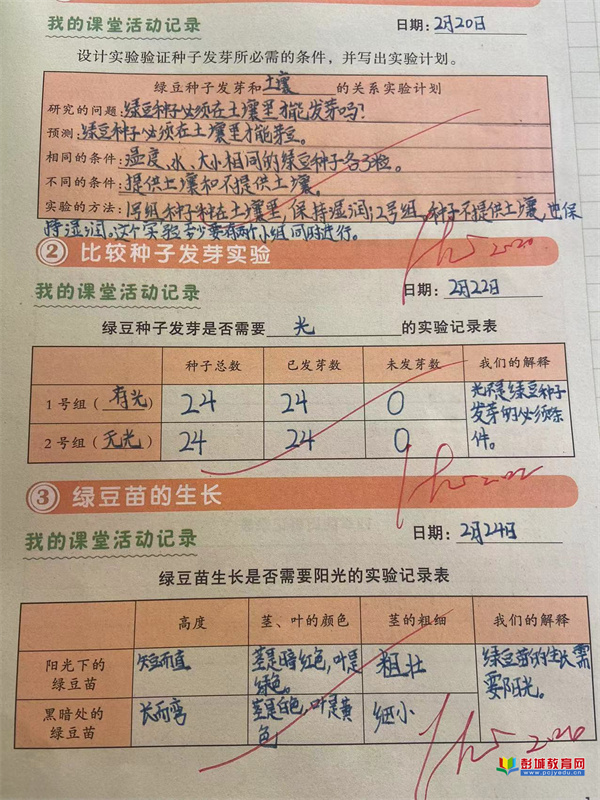 我的课堂活动记录 日期：2月20日
设计实验验证种子发芽所必需的条件，并写出实验计划。
绿豆种子发芽和 土壤 的关系实验计划
研究的问题：绿豆种子必须在土壤里才能发芽吗？
预测：绿豆种子必须在土壤里才能发芽。
相同的条件：温度、水、大小相同的绿豆种子各3粒。
不同的条件：提供土壤和不提供土壤。
实验的方法：1号组种子种在土壤里，保持湿润；2号组，种子不提供土壤，也保
持湿润。这个实验至少要有两个小组同时进行。
② 比较种子发芽实验
我的课堂活动记录 日期：2月22日
绿豆种子发芽是否需要 光 的实验记录表
种子总数 已发芽数 未发芽数 我们的解释
1号组（有光） 24 24 0 光不是绿豆种子
发芽的必须条
件。
2号组（无光） 24 24 0
③ 绿豆苗的生长
我的课堂活动记录 日期：2月24日
绿豆苗生长是否需要阳光的实验记录表
高度 茎、叶的颜色 茎的粗细 我们的解释
阳光下的
绿豆苗 矮而直 茎是暗红色，叶是
绿色。 粗壮 绿豆苗的生长需
要阳光。
黑暗处的
绿豆苗 长而弯 茎是白色，叶是黄
色 细小
彭城教育网
www.pcjyedu.cn